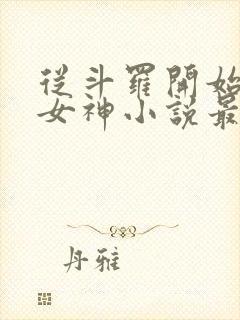 從斗羅開始
女神小說最
丹雅